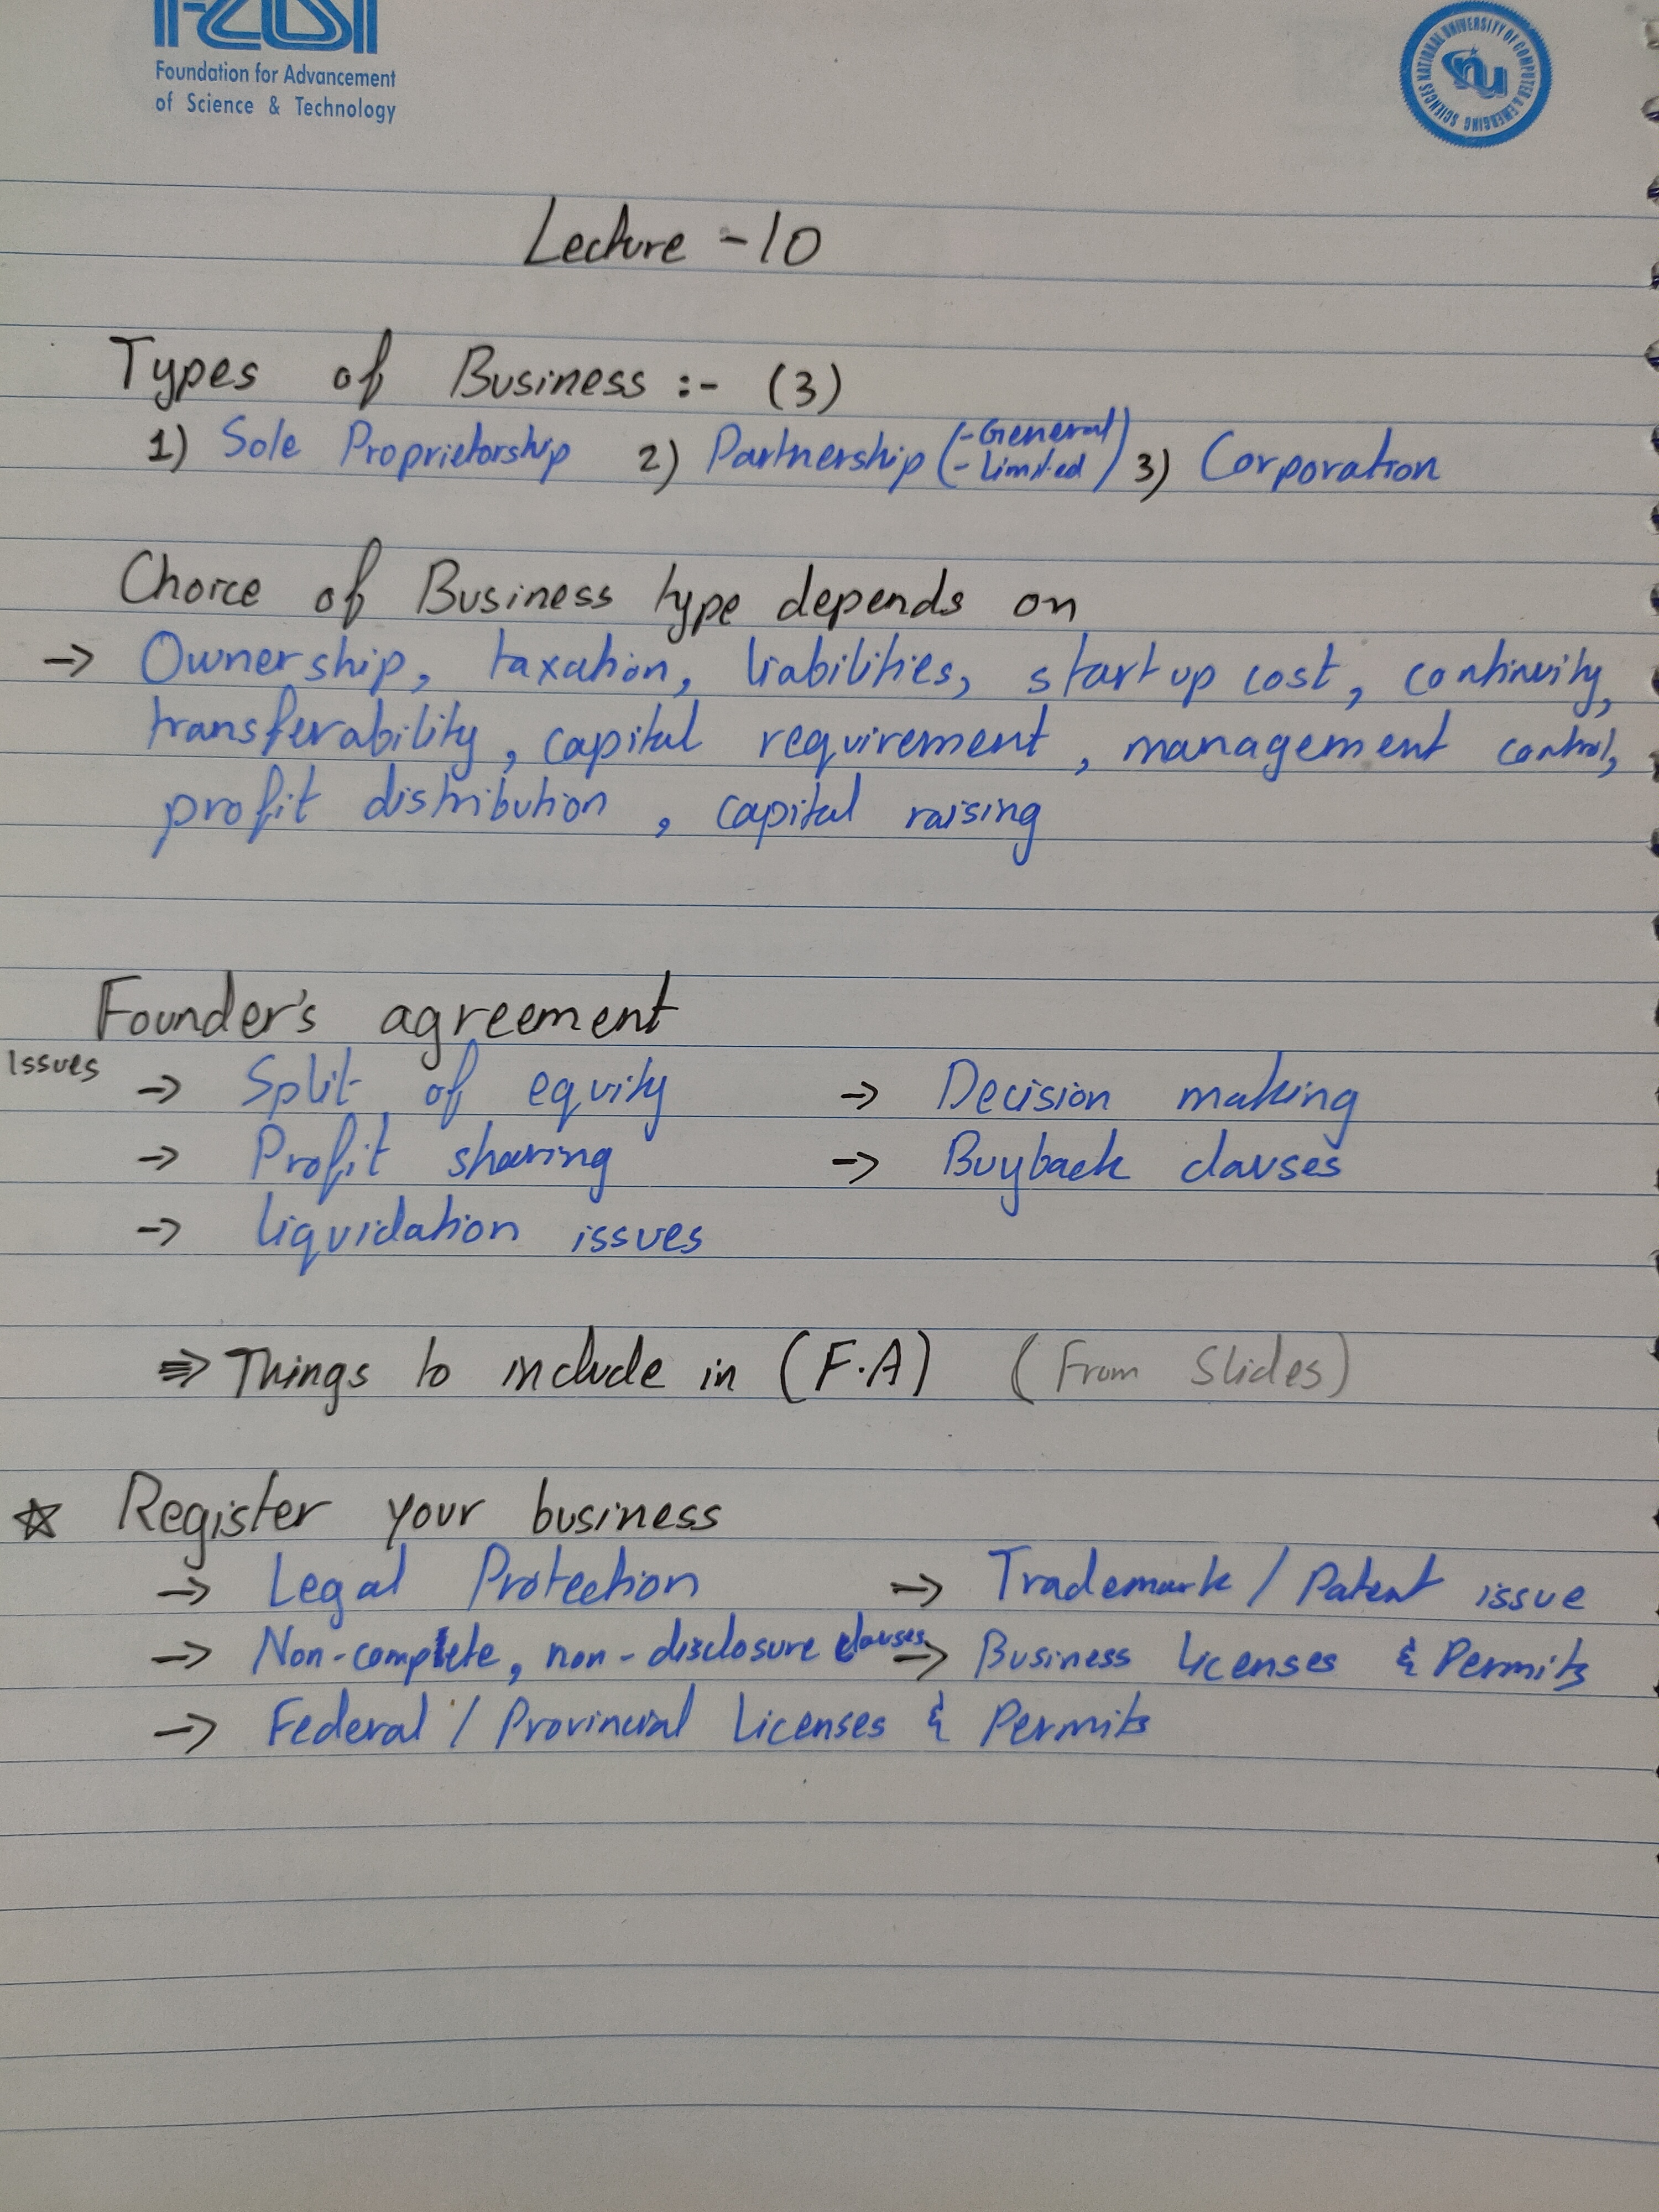 Foundation for Advancement
of Science & Technology
NATIONAL UNIVERSITY OF COMPUTER & EMERGING SCIENCES
nu
Lecture - 10
Types of Business :- (3)
1) Sole Proprietorship 2) Partnership (-General -Limited) 3) Corporation
Choice of Business type depends on
→ Ownership, taxation, liabilities, start up cost, continuity,
transferability, capital requirement, management control,
profit distribution, capital raising
Founder's agreement
Issues → Split of equity → Decision making
→ Profit sharing → Buyback clauses
→ Liquidation issues
⇒ Things to include in (F.A) (From Slides)
☆ Register your business
→ Legal Protection → Trademark / Patent issue
→ Non-complete, non-disclosure clauses → Business Licenses & Permits
→ Federal / Provincial Licenses & Permits